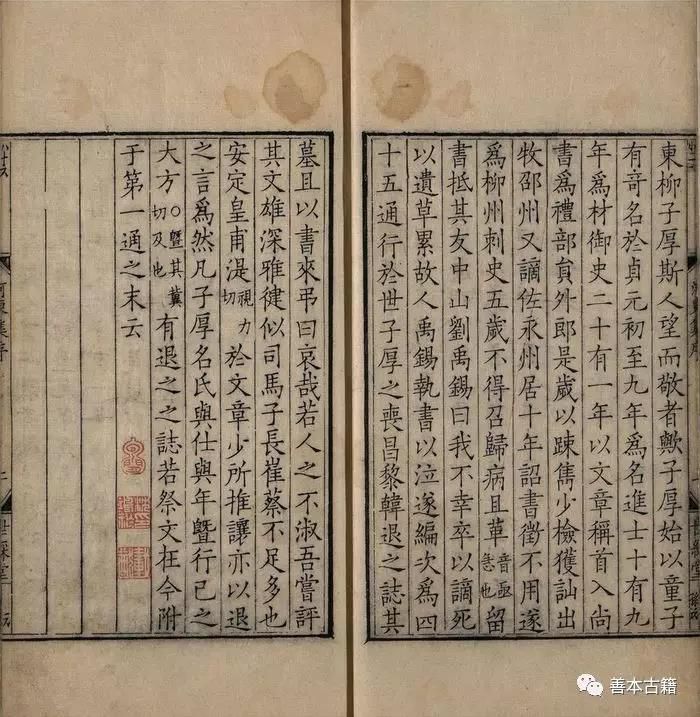 東柳子厚斯人望而敬者歟子厚始以童子
有奇名於貞元初至九年爲名進士十有九
年爲材御史二十有一年以文章稱首入尚
書爲禮部貟外郎是歲以踈雋少檢獲訕出
牧邵州又謫佐永州居十年詔書徵不用遂
爲柳州刺史五歲不得召歸病且革音亟急也留
書抵其友中山劉禹錫曰我不幸卒以謫死
以遺草累故人禹錫執書以泣遂編次爲四
十五通行於世子厚之喪昌黎韓退之誌其
墓且以書來弔曰哀哉若人之不淑吾嘗評
其文雄深雅健似司馬子長崔蔡不足多也
安定皇甫湜視力切於文章少所推讓亦以退
之言爲然凡子厚名氏與仕與年暨行己之
大方〇暨其冀切及也有退之之誌若祭文在今附
于第一通之末云
河東集序
世綵堂
善本古籍